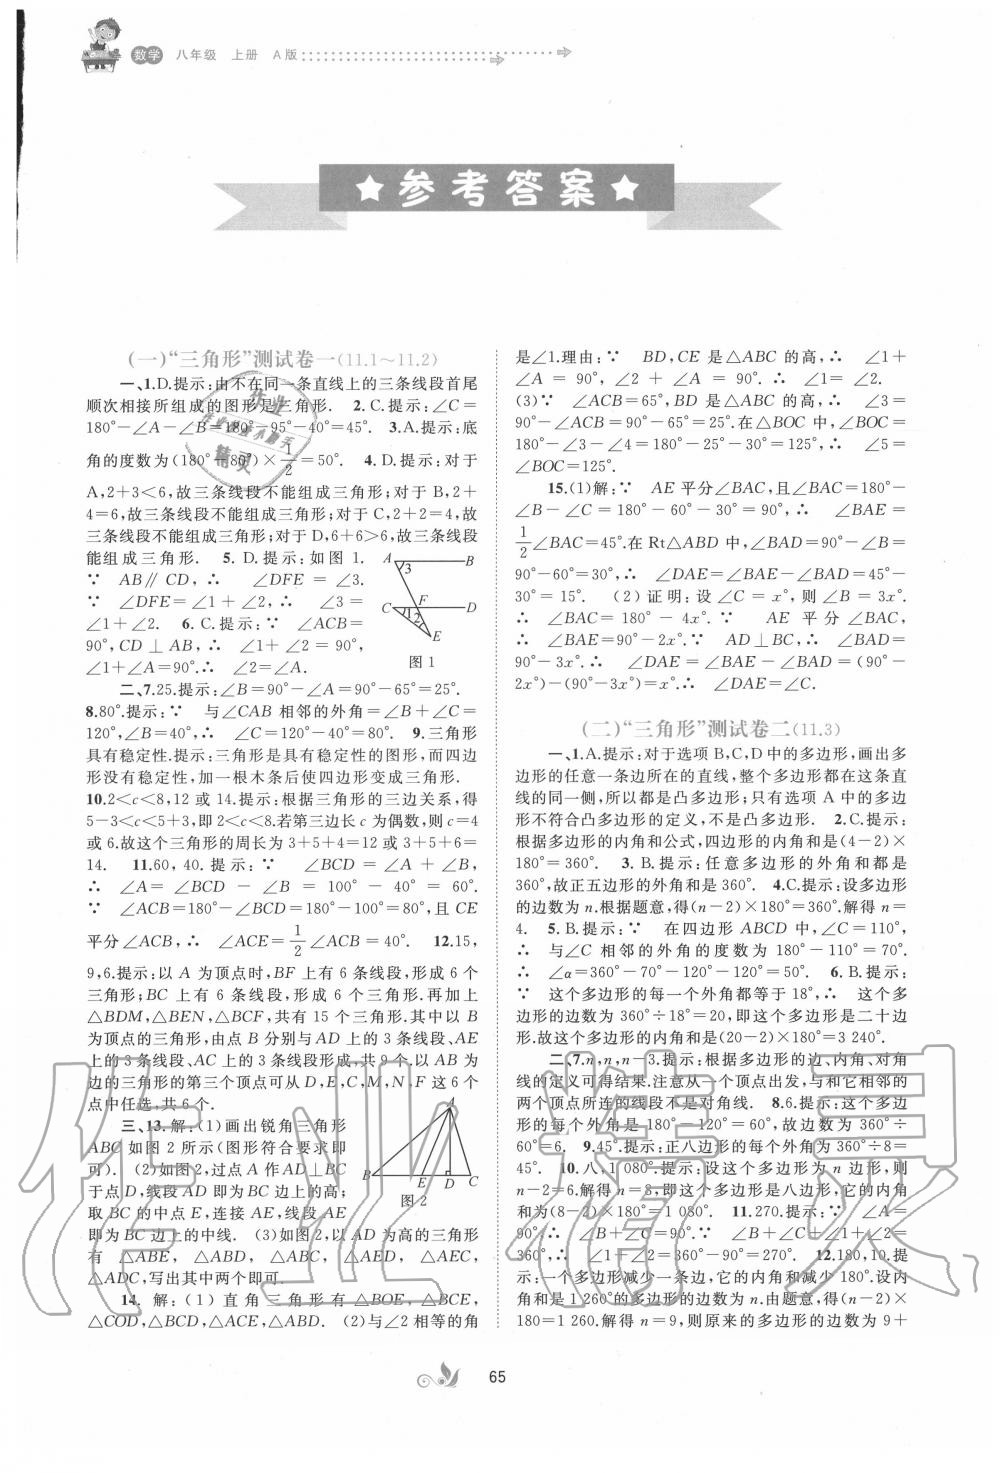 数学 八年级 上册 A版
参考答案
(一)“三角形”测试卷一(11.1～11.2)
一、1.D.提示:由不在同一条直线上的三条线段首尾
顺次相接所组成的图形是三角形. 2.C.提示:∠C=
180°-∠A-∠B=180°-95°-40°=45°. 3.A.提示:底
角的度数为(180°-80°)×1/2=50°. 4.D.提示:对于
A,2+3<6,故三条线段不能组成三角形;对于 B,2+
4=6,故三条线段不能组成三角形;对于 C,2+2=4,故
三条线段不能组成三角形;对于 D,6+6>6,故三条线段
能组成三角形. 5.D.提示:如图 1.
∵ AB∥CD,∴ ∠DFE=∠3.
∵ ∠DFE=∠1+∠2,∴ ∠3=
∠1+∠2. 6.C.提示:∵ ∠ACB=
90°,CD⊥AB,∴ ∠1+∠2=90°,
∠1+∠A=90°.∴ ∠2=∠A.
A 3 B C F D 1 2 E
图 1
二、7.25.提示:∠B=90°-∠A=90°-65°=25°.
8.80°.提示:∵ 与∠CAB 相邻的外角=∠B+∠C=
120°,∠B=40°,∴ ∠C=120°-40°=80°. 9.三角形
具有稳定性.提示:三角形是具有稳定性的图形,而四边
形没有稳定性,加一根木条后使四边形变成三角形.
10.2<c<8,12 或 14.提示:根据三角形的三边关系,得
5-3<c<5+3,即 2<c<8.若第三边长 c 为偶数,则 c=4
或 6.故这个三角形的周长为 3+5+4=12 或 3+5+6=
14. 11.60,40.提示:∵ ∠BCD=∠A+∠B,
∴ ∠A=∠BCD-∠B=100°-40°=60°.
∵ ∠ACB=180°-∠BCD=180°-100°=80°,且 CE
平分∠ACB,∴ ∠ACE=1/2∠ACB=40°. 12.15,
9,6.提示:以 A 为顶点时,BF 上有 6 条线段,形成 6 个
三角形;BC 上有 6 条线段,形成 6 个三角形.再加上
△BDM,△BEN,△BCF,共有 15 个三角形.其中以 B
为顶点的三角形,由点 B 分别与 AD 上的 3 条线段、AE
上的 3 条线段、AC 上的 3 条线段形成,共 9 个.以 AB 为
边的三角形的第三个顶点可从 D,E,C,M,N,F 这 6 个
点中任选,共 6 个.
三、13.解:(1)画出锐角三角形
ABC 如图 2 所示(图形符合要求即
可). (2)如图2,过点 A 作AD⊥BC
于点 D,线段 AD 即为 BC 边上的高;
取 BC 的中点 E,连接 AE,线段 AE
即为 BC 边上的中线. (3)如图2,以 AD 为高的三角形
有 △ABE, △ABD, △ABC, △AED, △AEC,
△ADC,写出其中两个即可.
A B E D C
图 2
14. 解:(1)直角三角形有△BOE,△BCE,
△COD,△BCD,△ACE,△ABD. (2)与∠2相等的角
是∠1.理由:∵ BD,CE 是△ABC 的高,∴ ∠1+
∠A=90°,∠2+∠A=90°.∴ ∠1=∠2.
(3)∵ ∠ACB=65°,BD 是△ABC 的高,∴ ∠3=
90°-∠ACB=90°-65°=25°.在△BOC 中,∠BOC=
180°-∠3-∠4=180°-25°-30°=125°,∴ ∠5=
∠BOC=125°.
15.(1)解:∵ AE 平分∠BAC,且∠BAC=180°-
∠B-∠C=180°-60°-30°=90°,∴ ∠BAE=
1/2∠BAC=45°.在 Rt△ABD 中,∠BAD=90°-∠B=
90°-60°=30°,∴ ∠DAE=∠BAE-∠BAD=45°-
30°=15°. (2)证明:设∠C=x°,则∠B=3x°.
∴ ∠BAC=180°-4x°.∵ AE 平分∠BAC,
∴ ∠BAE=90°-2x°.∵ AD⊥BC,∴ ∠BAD=
90°-3x°.∴ ∠DAE=∠BAE-∠BAD=(90°-
2x°)-(90°-3x°)=x°.∴ ∠DAE=∠C.
(二)“三角形”测试卷二(11.3)
一、1.A.提示:对于选项B,C,D 中的多边形,画出多
边形的任意一条边所在的直线,整个多边形都在这条直
线的同一侧,所以都是凸多边形;只有选项 A 中的多边
形不符合凸多边形的定义,不是凸多边形. 2.C.提示:
根据多边形的内角和公式,四边形的内角和是(4-2)×
180°=360°. 3.B.提示:任意多边形的外角和都是
360°,故正五边形的外角和是 360°. 4.C.提示:设多边形
的边数为 n.根据题意,得(n-2)×180°=360°.解得 n=
4. 5.B.提示:∵ 在四边形 ABCD 中,∠C=110°,
∴ 与∠C 相邻的外角的度数为 180°-110°=70°.
∴ ∠α=360°-70°-120°-120°=50°. 6.B.提示:
∵ 这个多边形的每一个外角都等于 18°,∴ 这个多
边形的边数为 360°÷18°=20,即这个多边形是二十边
形.故这个多边形的内角和是(20-2)×180°=3 240°.
二、7.n,n,n-3.提示:根据多边形的边、内角、对角
线的定义可得结果.注意从一个顶点出发,与和它相邻的
两个顶点所连的线段不是对角线. 8.6.提示:这个多边
形的每个外角是 180°-120°=60°,故边数为 360°÷
60°=6. 9.45°.提示:正八边形的每个外角为 360°÷8=
45°. 10.八,1 080°.提示:设这个多边形为 n 边形,则
n-2=6.解得 n=8,即这个多边形是八边形,它的内角
和为(8-2)×180°=1 080°. 11.270.提示:∵ ∠A=
90°,∴ ∠B+∠C=90°.∵ ∠B+∠C+∠1+∠2=
360°,∴ ∠1+∠2=360°-90°=270°. 12.180,10.提
示:一个多边形减少一条边,它的内角和减少 180°.设内
角和是 1 260°的多边形的边数为 n.由题意,得(n-2)×
180=1 260.解得 n=9,则原来的多边形的边数为 9+
65
作业精灵